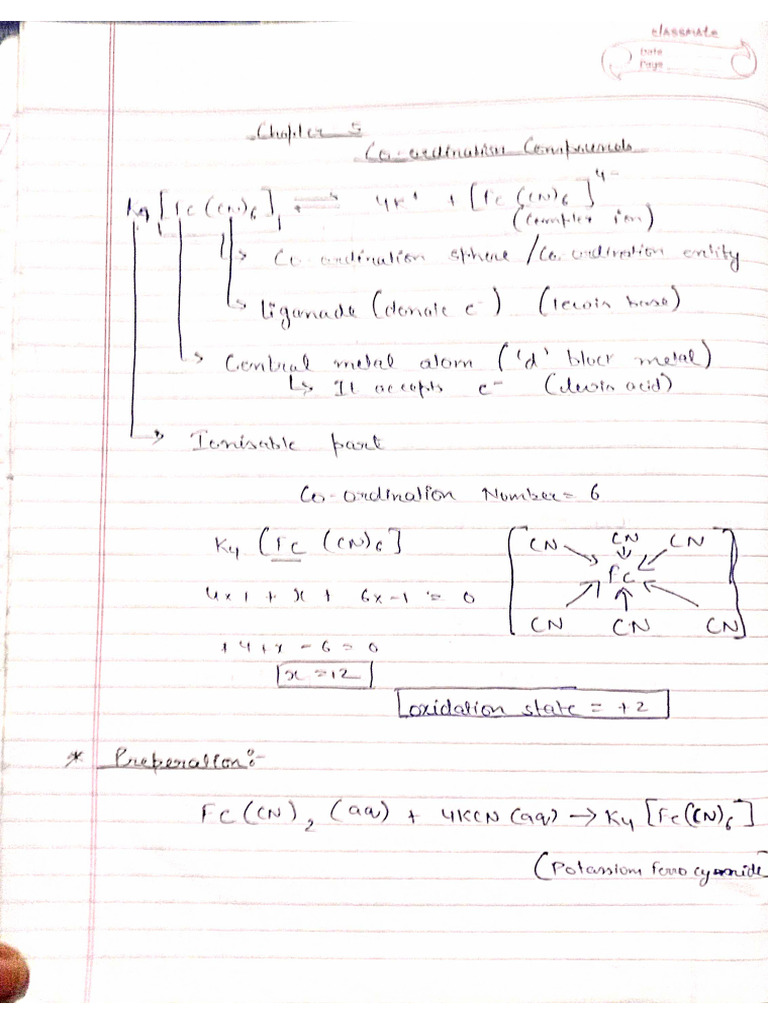 classmate
Date
Page
Chapter 5
Co-ordination Compounds
K4 [Fe (CN)6] ⇌ 4K+ + [Fe (CN)6]4-
(Complex ion)
↳ Co-ordination sphere / Co-ordination entity
↳ Liganade (donate e-) (lewis base)
↳ Central metal atom ('d' block metal)
↳ It accepts e- (lewis acid)
→ Ionisable part
Co-ordination Number = 6
K4 [Fe (CN)6]
4x1 + x + 6x-1 = 0
+4+x-6=0
x = +2
CN CN CN
Fe
CN CN CN
oxidation state = +2
* Preperation:-
Fe(CN)2 (aq) + 4KCN (aq) → K4 [Fe(CN)6]
(Potassium ferro cyanide